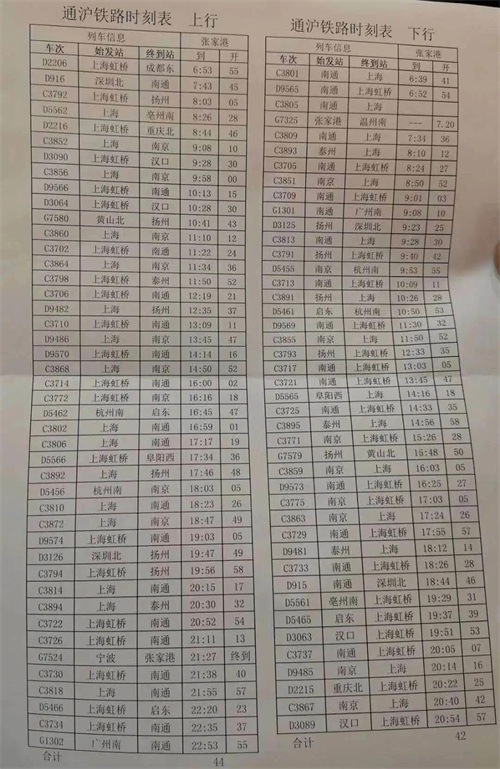 通沪铁路时刻表 上行
列车信息 张家港
车次 始发站 终到站 到 开
D2206 上海虹桥 成都东 6:53 55
D916 深圳北 南通 7:43 45
C3792 上海虹桥 扬州 8:03 05
D5562 上海 亳州南 8:26 28
D2216 上海虹桥 重庆北 8:44 46
C3852 上海 南京 9:08 10
D3090 上海虹桥 汉口 9:28 30
C3856 上海 南京 9:58 00
D9566 上海虹桥 南通 10:13 15
D3064 上海虹桥 汉口 10:28 30
G7580 黄山北 扬州 10:41 43
C3860 上海 南京 11:10 12
C3702 上海虹桥 南通 11:22 24
C3864 上海 南京 11:34 36
C3798 上海虹桥 泰州 11:50 52
C3706 上海虹桥 南通 12:19 21
D9482 上海 扬州 12:35 37
C3710 上海虹桥 南通 13:09 11
D9486 上海 南京 13:45 47
D9570 上海虹桥 南通 14:14 16
C3868 上海 南京 14:50 52
C3714 上海虹桥 南通 16:00 02
C3772 上海虹桥 南京 16:16 18
D5462 杭州南 启东 16:45 47
C3802 上海 南通 16:59 01
C3806 上海 南通 17:17 19
D5566 上海虹桥 阜阳西 17:34 36
C3892 上海 扬州 17:46 48
D5456 杭州南 南京 18:03 05
C3810 上海 南通 18:23 26
C3872 上海 南京 18:47 49
D9574 上海虹桥 南通 19:03 05
D3126 深圳北 扬州 19:47 49
C3794 上海虹桥 扬州 19:56 58
C3814 上海 南通 20:15 17
C3894 上海 泰州 20:30 32
C3722 上海虹桥 南通 20:52 54
C3726 上海虹桥 南通 21:11 13
G7524 宁波 张家港 21:27 终到
C3730 上海虹桥 南通 21:38 40
C3818 上海 南通 21:55 57
D5466 上海虹桥 启东 22:20 23
C3734 上海虹桥 南通 22:35 37
G1302 广州南 南通 22:53 55
合计 44
通沪铁路时刻表 下行
列车信息 张家港
车次 始发站 终到站 到 开
C3801 南通 上海 6:39 41
D9565 南通 上海虹桥 6:52 54
C3805 南通 上海
G7325 张家港 温州南 --- 7.20
C3809 南通 上海 7:34 36
C3893 泰州 上海 8:10 12
C3705 南通 上海虹桥 8:24 27
C3851 南京 上海 8:50 52
C3709 南通 上海虹桥 9:01 03
G1301 南通 广州南 9:08 10
D3125 扬州 深圳北 9:23 25
C3813 南通 上海 9:28 30
C3791 扬州 上海虹桥 9:40 42
D5455 南京 杭州南 9:53 55
C3713 南通 上海虹桥 10:09 11
C3891 扬州 上海 10:26 28
D5461 启东 杭州南 10:50 53
D9569 南通 上海虹桥 11:30 32
C3855 南京 上海 11:50 52
C3793 扬州 上海虹桥 12:33 35
C3717 南通 上海虹桥 13:03 05
C3721 南通 上海虹桥 13:45 47
D5565 阜阳西 上海 14:16 18
C3725 南通 上海虹桥 14:33 35
C3895 泰州 上海 14:56 58
C3771 南京 上海虹桥 15:26 28
G7579 扬州 黄山北 15:48 50
C3859 南京 上海 16:03 05
D9573 南通 上海虹桥 16:25 27
C3775 南京 上海虹桥 17:03 05
C3863 南京 上海 17:24 26
C3729 南通 上海虹桥 17:55 57
D9481 泰州 上海 18:12 14
C3733 南通 上海虹桥 18:26 28
D915 南通 深圳北 18:44 46
D5561 亳州南 上海虹桥 19:29 31
D5465 启东 上海虹桥 19:37 39
D3063 汉口 上海虹桥 19:51 53
C3737 南通 上海虹桥 20:05 07
D9485 南京 上海 20:14 16
D2215 重庆北 上海虹桥 20:22 25
C3867 南京 上海 20:40 42
D3089 汉口 上海虹桥 20:54 57
合计 42